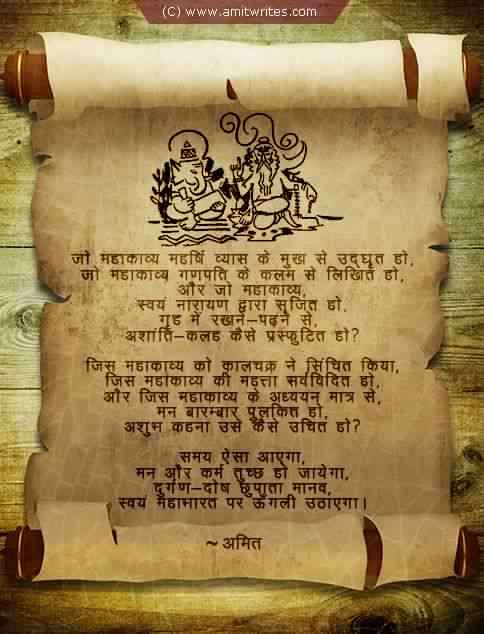 (C) www.amitwrites.com
जो महाकाव्य महर्षि व्यास के मुख से उद्घृत हो,
जो महाकाव्य गणपति के कलम से लिखित हो,
और जो महाकाव्य,
स्वयं नारायण द्वारा सृजित हो,
गृह में रखने–पढ़ने से,
अशांति–कलह कैसे प्रस्फुटित हो?
जिस महाकाव्य को कालचक्र ने सिंचित किया,
जिस महाकाव्य की महत्ता सर्वविदित हो,
और जिस महाकाव्य के अध्ययन मात्र से,
मन बारम्बार पुलकित हो,
अशुभ कहना उसे कैसे उचित हो?
समय ऐसा आएगा,
मन और कर्म तुच्छ हो जायेगा,
दुर्गुण–दोष छुपाता मानव,
स्वयं महाभारत पर ऊँगली उठाएगा।
~ अमित